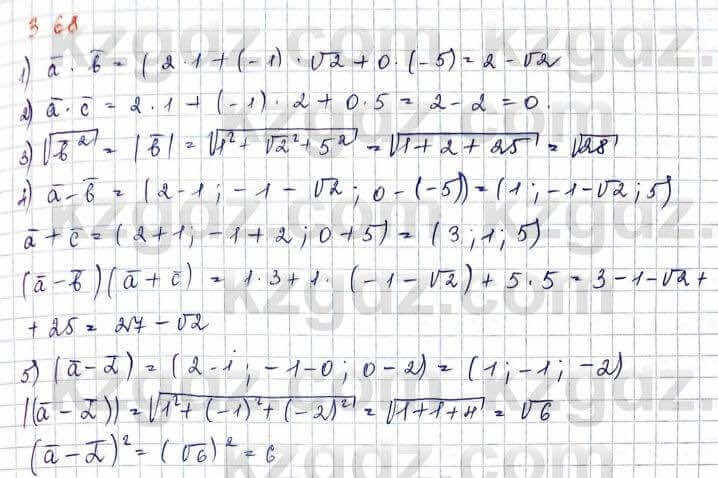 368
1) a̅ · b̅ = (2·1 + (-1) · √2 + 0 · (-5) = 2 - √2
2) a̅ · c̅ = 2·1 + (-1) · 2 + 0·5 = 2 - 2 = 0.
3) √(b̅²) = |b̅| = √(1² + √2² + 5²) = √(1 + 2 + 25) = √28
4) a̅ - b̅ = (2-1; -1 - √2; 0 - (-5)) = (1; -1-√2; 5)
a̅ + c̅ = (2+1; -1+2; 0+5) = (3; 1; 5)
(a̅ - b̅)(a̅ + c̅) = 1·3 + 1· (-1-√2) + 5·5 = 3-1-√2 +
+ 25 = 27 - √2
5) (a̅ - d̅) = (2-1; -1-0; 0-2) = (1; -1; -2)
|(a̅ - d̅)) = √(1² + (-1)² + (-2)²) = √(1+1+4) = √6
(a̅ - d̅)² = (√6)² = 6
kzgdz.com